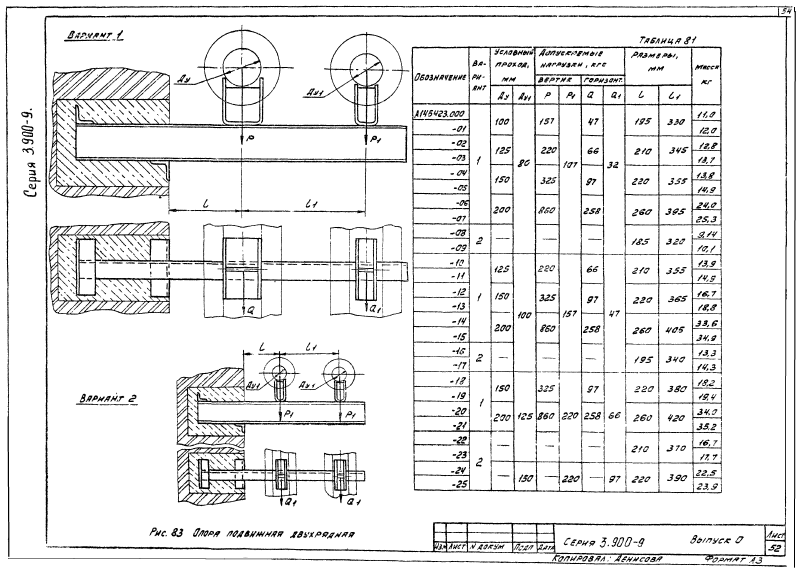 54
Серия 3.900-9.
Вариант 1
Ду
Ду1
P
P1
l
l1
Q
Q1
l
l1
Ду1
Ду1
Вариант 2
P1
P1
Q1
Q1
Рис. 83 Опора подвижная двухрядная
Таблица 81
Обозначение | Вариант | Условный проход, мм | Допускаемые нагрузки, кгс | Размеры, мм | Масса кг
вертик | горизонт.
Ду | Ду1 | P | P1 | Q | Q1 | l | l1
А14Б423.000 | 1 | 100 | 80 | 157 | 107 | 47 | 32 | 195 | 330 | 11,0
-01 | 12,0
-02 | 125 | 220 | 66 | 210 | 345 | 12,8
-03 | 13,7
-04 | 150 | 325 | 97 | 220 | 355 | 13,8
-05 | 14,9
-06 | 200 | 860 | 258 | 260 | 395 | 24,0
-07 | 25,3
-08 | 2 | — | — | — | 185 | 320 | 9,14
-09 | 10,1
-10 | 1 | 125 | 100 | 220 | 157 | 66 | 47 | 210 | 355 | 13,9
-11 | 14,9
-12 | 150 | 325 | 97 | 220 | 365 | 16,7
-13 | 18,8
-14 | 200 | 860 | 258 | 260 | 405 | 33,6
-15 | 34,9
-16 | 2 | — | — | — | 195 | 340 | 13,3
-17 | 14,3
-18 | 1 | 150 | 125 | 325 | 220 | 97 | 66 | 220 | 380 | 18,2
-19 | 19,4
-20 | 200 | 860 | 258 | 260 | 420 | 34,0
-21 | 35,2
-22 | 2 | 210 | 370 | 16,7
-23 | 17,7
-24 | — | 150 | — | 220 | — | 97 | 220 | 390 | 22,5
-25 | 23,9
Изм Лист № докум Подп Дата
Серия 3.900-9 Выпуск 0
Лист
52
Копировал: Денисова Формат А3